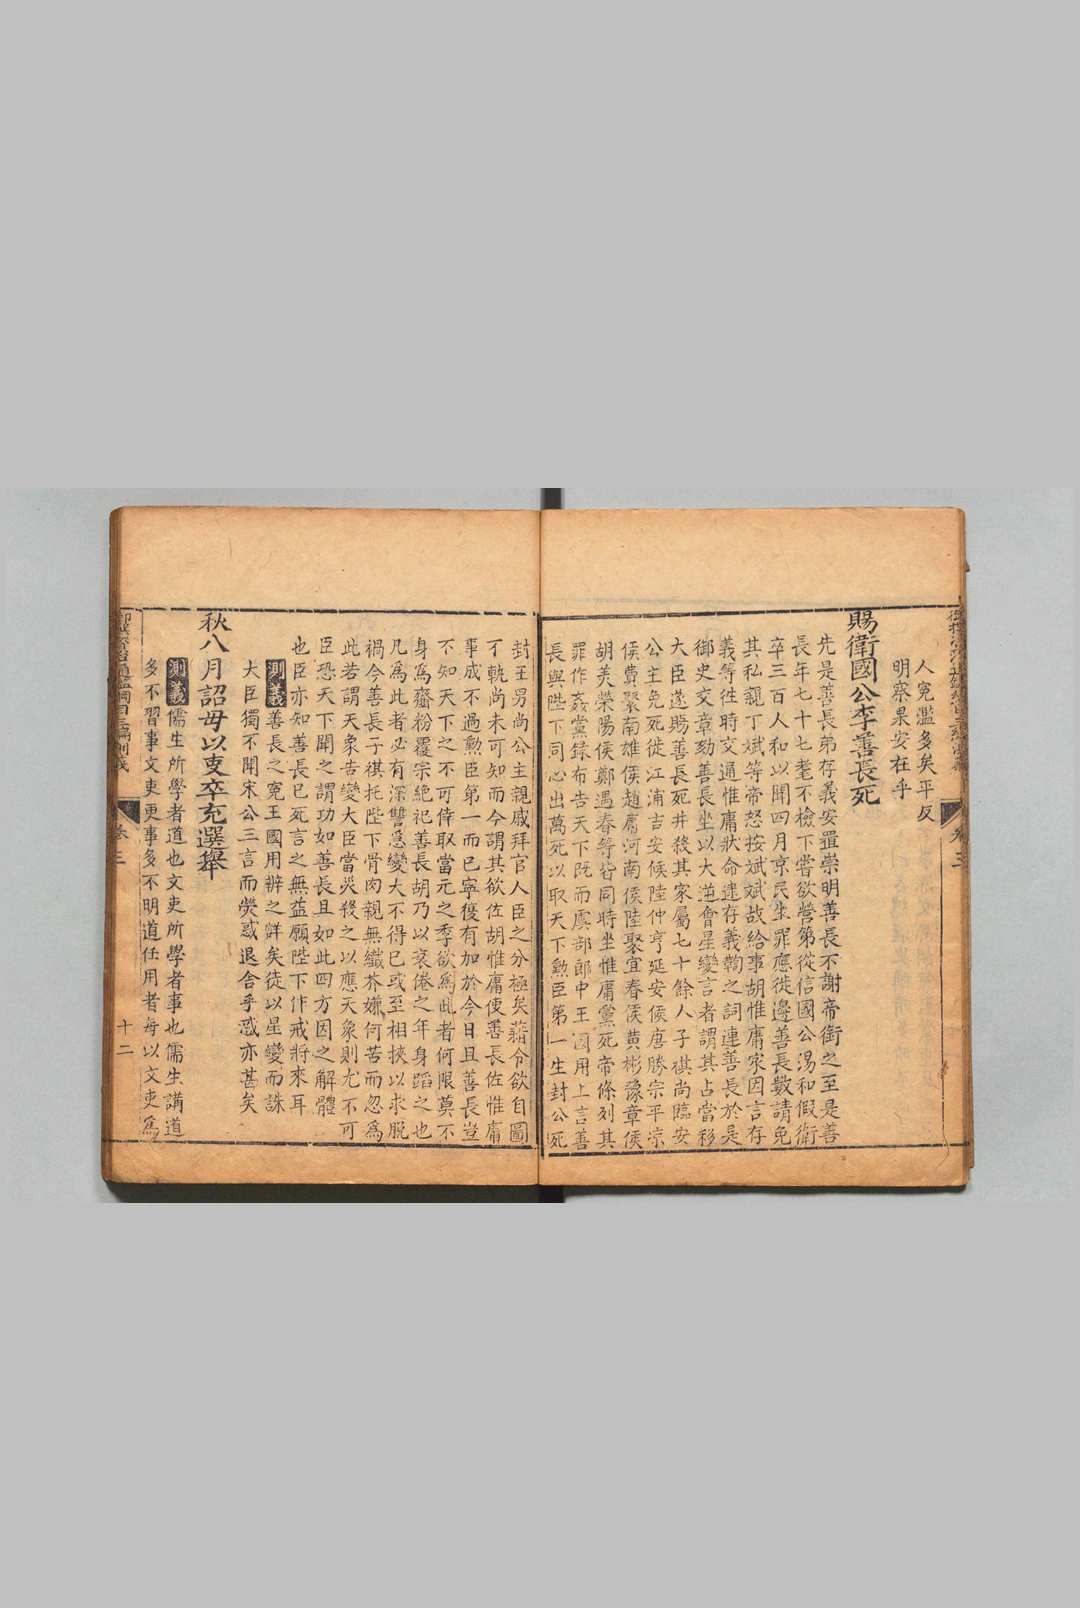 人冤濫多矣平反
明察果安在乎
賜衛國公李善長死
先是善長弟存義安置崇明善長不謝帝銜之至是善
長年七十七耄不檢下嘗欲營第從信國公湯和假衛
卒三百人和以聞四月京民坐罪應徙邊善長數請免
其私親丁斌等帝怒按斌斌故給事胡惟庸家因言存
義等往時交通惟庸狀命逮存義鞫之詞連善長於是
御史交章劾善長坐以大逆會星變言者謂其占當移
大臣遂賜善長死并殺其家屬七十餘人子祺尚臨安
公主免死徙江浦吉安侯陸仲亨延安侯唐勝宗平涼
侯費聚南雄侯趙庸河南侯陸聚宜春侯黃彬豫章侯
胡美滎陽侯鄭遇春等皆同時坐惟庸黨死帝條列其
罪作姦黨錄布告天下既而虞部郎中王國用上言善
長與陛下同心出萬死以取天下勲臣第一生封公死
封王男尚公主親戚拜官人臣之分極矣藉令欲自圖
不軌尚未可知而今謂其欲佐胡惟庸使善長佐惟庸
事成不過勲臣第一而已寧復有加於今日且善長豈
不知天下之不可倖取當元之季欲爲此者何限莫不
身爲齏粉覆宗絕祀善長胡乃以衰倦之年身蹈之也
凡爲此者必有深讐急變大不得已或至相挾以求脫
禍今善長子祺托陛下骨肉親無纖芥嫌何苦而忽爲
此若謂天象告變大臣當災殺之以應天象則尤不可
臣恐天下聞之謂功如善長且如此四方因之解體
也臣亦知善長已死言之無益願陛下作戒將來耳
測義善長之冤王國用辨之詳矣徒以星變而誅
大臣獨不聞宋公三言而熒惑退舍乎惑亦甚矣
秋八月詔毋以吏卒充選舉
測義儒生所學者道也文吏所學者事也儒生講道
多不習事文吏更事多不明道任用者每以文吏爲
卷三
十二